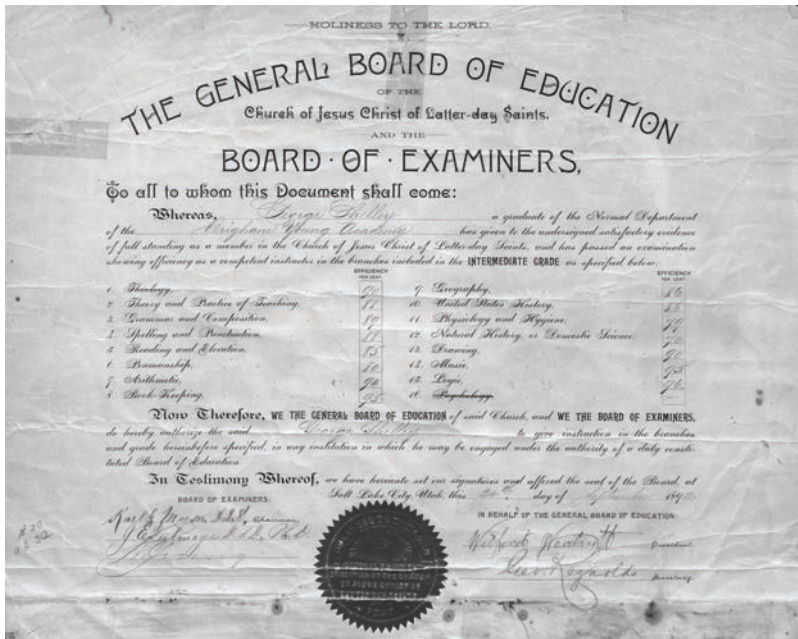 HOLINESS TO THE LORD.
THE GENERAL BOARD OF EDUCATION
OF THE
Church of Jesus Christ of Latter-day Saints.
AND THE
BOARD · OF · EXAMINERS,
To all to whom this Document shall come:
Whereas, George Shelley a graduate of the Normal Department
of the Brigham Young Academy has given to the undersigned satisfactory evidence
of full standing as a member in the Church of Jesus Christ of Latter-day Saints, and has passed an examination
showing efficiency as a competent instructor in the branches included in the INTERMEDIATE GRADE as specified below:
EFFICIENCY
PER CENT.
1. Theology.
2. Theory and Practice of Teaching. 88
3. Grammar and Composition.
4. Spelling and Punctuation. 88
5. Reading and Elocution. 85
6. Penmanship. 80
7. Arithmetic. 96
8. Book-Keeping. 95
EFFICIENCY
PER CENT.
9. Geography.
10. United States History. 85
11. Physiology and Hygiene.
12. Natural History, or Domestic Science.
13. Drawing. 90
14. Music. 95
15. Logic.
16. Psychology.
Now Therefore, WE THE GENERAL BOARD OF EDUCATION of said Church, and WE THE BOARD OF EXAMINERS,
do hereby authorize the said George Shelley to give instruction in the branches
and grade hereinbefore specified, in any institution in which he may be engaged under the authority of a duly consti-
tuted Board of Education.
In Testimony Whereof, we have hereunto set our signatures and affixed the seal of the Board, at
Salt Lake City, Utah, this 24th day of September 189
BOARD OF EXAMINERS.
Karl G. Maeser, chairman
J. E. Talmage
IN BEHALF OF THE GENERAL BOARD OF EDUCATION:
Wilford Woodruff President.
Geo. Reynolds Secretary.